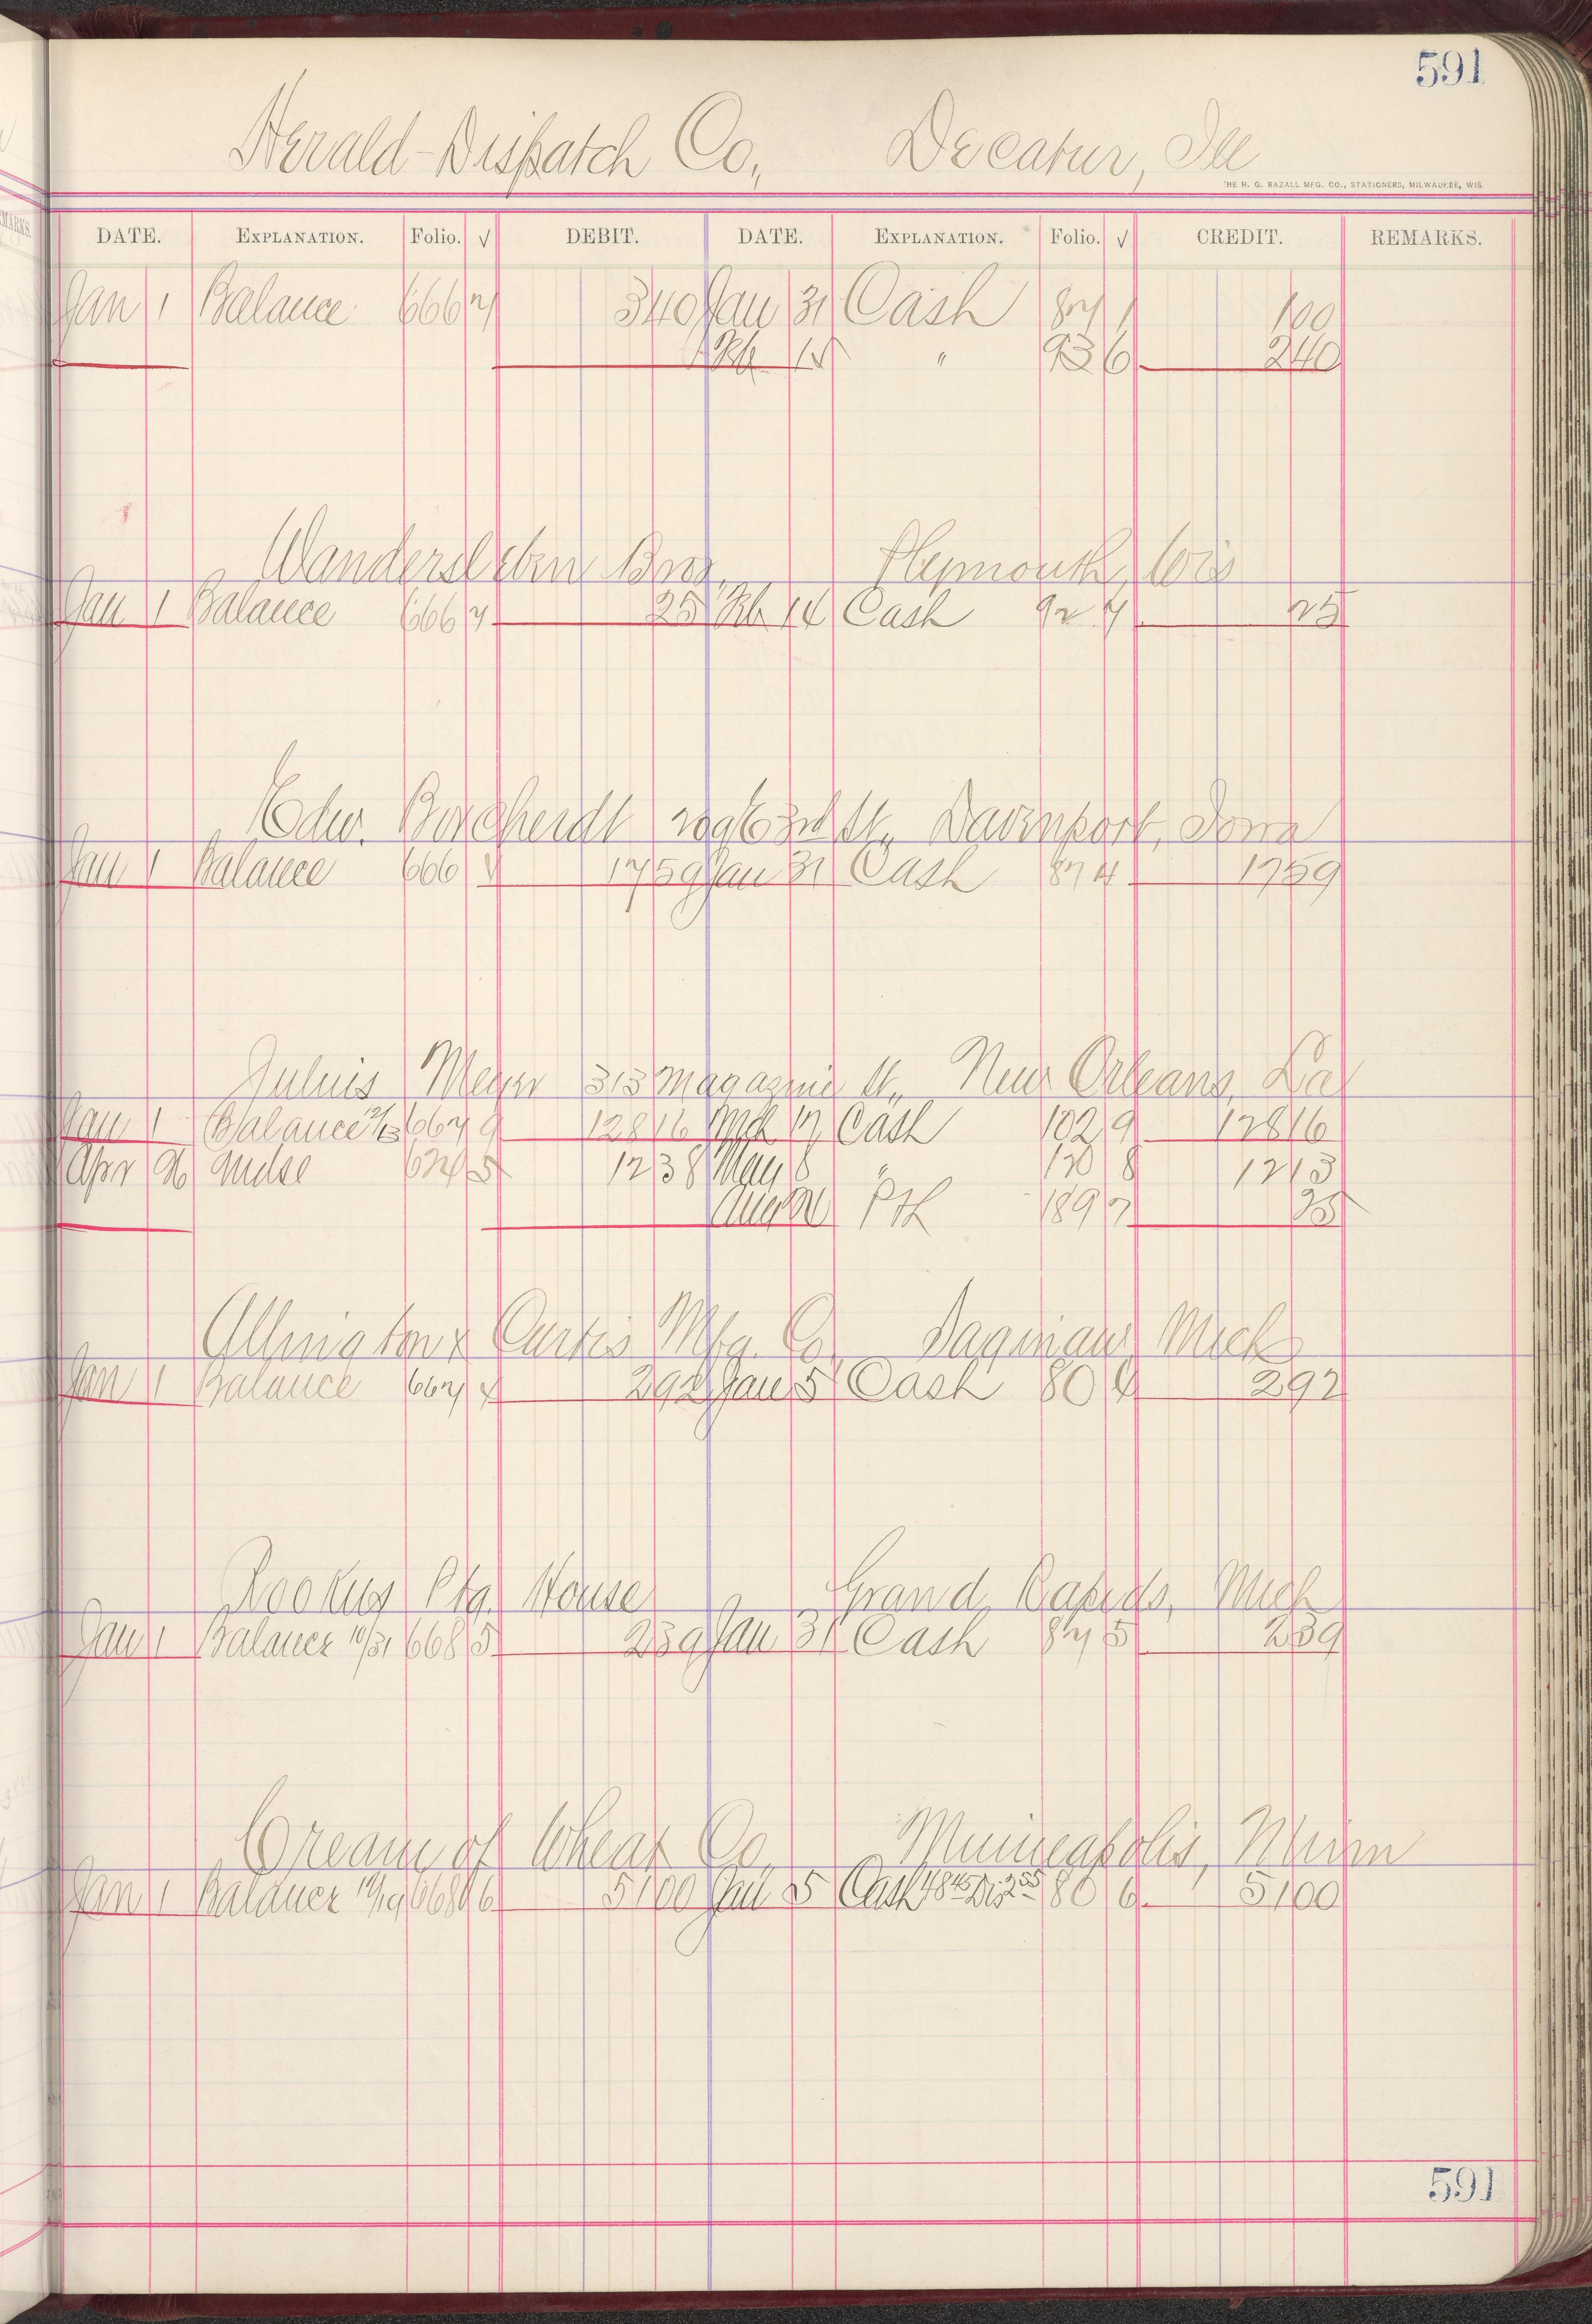 591
Herald-Dispatch Co., Decatur, Ill
THE H. G. RAZALL MFG. CO., STATIONERS, MILWAUKEE, WIS.
DATE. EXPLANATION. Folio. √ DEBIT. DATE. EXPLANATION. Folio. √ CREDIT. REMARKS.
Jan 1 Balance 666 7 340 Jan 31 Cash 87 1 100
Feb 15 " 93 6 240
Wandersleben Bros, Plymouth, Wis
Jan 1 Balance 666 7 25 Feb 14 Cash 92 7 25
Edw. Borcherdt 3rd St., Davenport, Iowa
Jan 1 Balance 666 1759 Jan 31 Cash 87 4 1759
Julius Meyer 313 Magazine St., New Orleans, La
Jan 1 Balance 667 9 12816 Mch 17 Cash 102 9 12816
Apr 26 Mdse 1238 May 8 " 130 8 1213
Aug P&L 189 7 25
Allington & Curtis Mfg. Co. Saginaw Mich
Jan 1 Balance 667 292 Jan 5 Cash 80 292
Ptg. House Grand Rapids, Mich
Jan 1 Balance 10/31 668 5 239 Jan 31 Cash 87 5 239
Cream of Wheat Co, Minneapolis, Minn
Jan 1 Balance 12/19 668 6 5100 Jan 5 Cash 48 45 Dis 2 55 80 6 5100
591